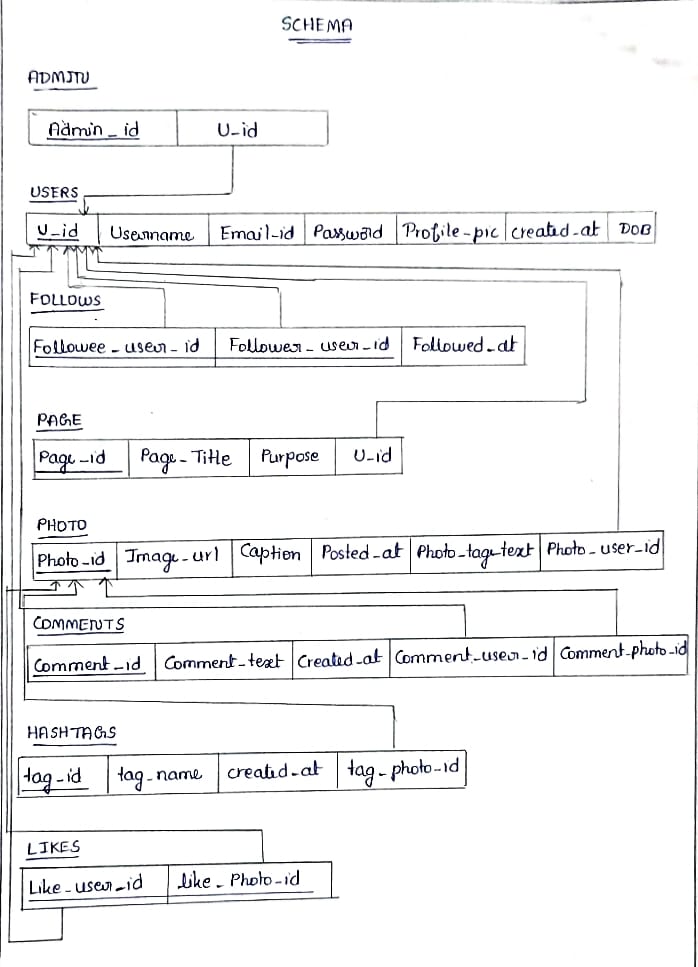 SCHEMA
ADMIN
Admin_id U_id
USERS
U_id Username Email_id Password Profile_pic created_at DOB
FOLLOWS
Followee_user_id Follower_user_id Followed_at
PAGE
Page_id Page_Title Purpose U_id
PHOTO
Photo_id Image_url Caption Posted_at Photo_tage_text Photo_user_id
COMMENTS
Comment_id Comment_text Created_at Comment_user_id Comment_photo_id
HASHTAGS
tag_id tag_name created_at tag_photo_id
LIKES
Like_user_id like_Photo_id